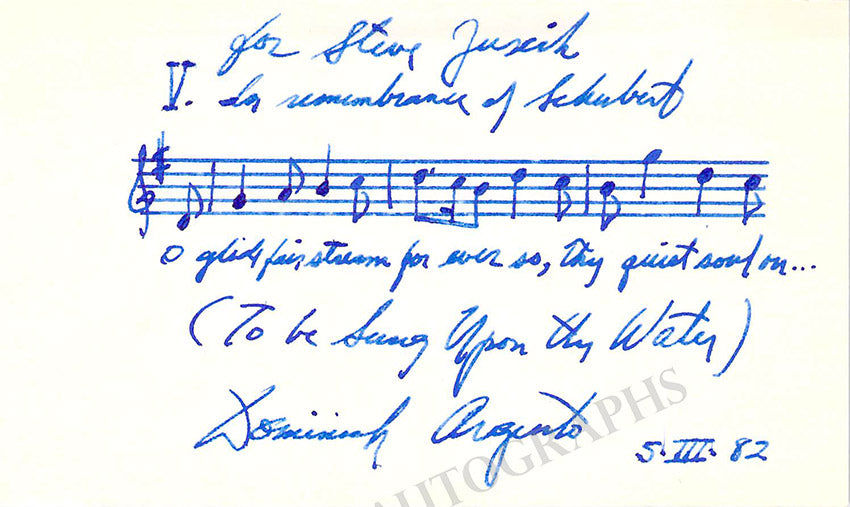 for Steve Juseik
V. In remembrance of Schubert
O glide, fair stream for ever so, Thy quiet soul on...
(To be Sung Upon the Water)
Dominick Argento
5. III. 82
AUTOGRAPHS